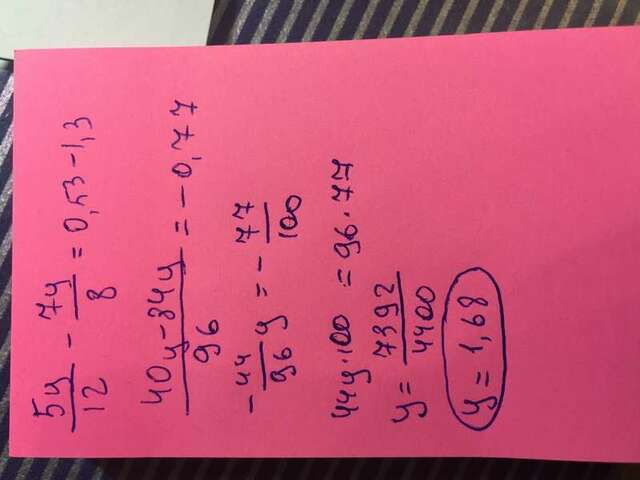 5y/12 - 7y/8 = 0,53 - 1,3
40y - 84y/96 = - 0,77
- 44/96 y = - 77/100
44y · 100 = 96 · 77
y = 7392/4400
y = 1,68